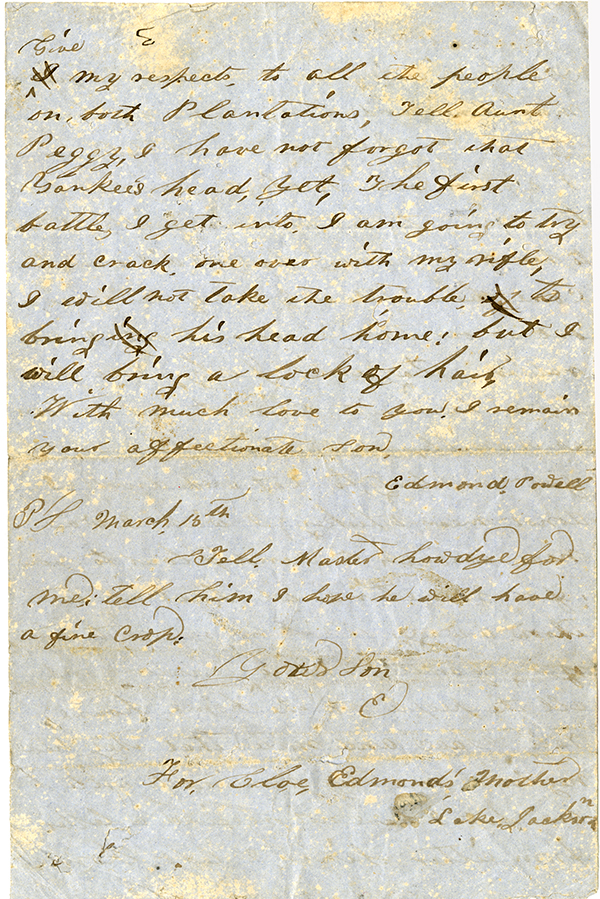 Give
I my respects, to all the people
on, both Plantations, Tell. Aunt
Peggy, I have not forgot that
Yankee's head, Yet, The first
battle, I get into, I am going to try
and crack, one over with my rifle,
I will not take the trouble, to
bringing his head home; but I
will bring a lock of hair,
With much love to you. I remain
your affectionate Son,
Edmond, Powell
PS March, 15th
Tell. Master howdye for
me; tell him I hope he will have
a fine crop;
Your Son
E
For, Cloe, Edmonds' Mother
Lake, Jackson